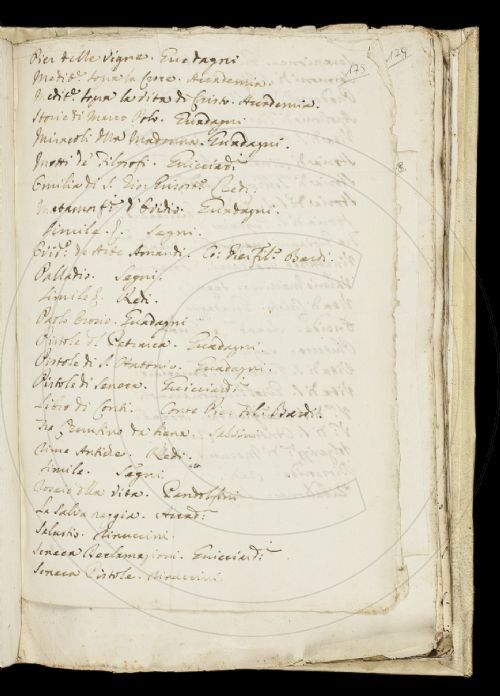 129
175
Pier delle Vigne. Guadagni
Medit.ⁿ sopra la Cena. Accademia.
Medit.ⁿ sopra la Vita di Cristo. Accademia.
Storie di Marco Polo. Guadagni
Miracoli della Madonna. Guadagni.
Motti de' Filosofi. Guicciard.ⁱ
Omilia di S. Gio: Grisost.º Redi.
Metamorfⁱ d'Ovidio. Guadagni.
Simile. Segni.
de Arte Amandi. Co: Pier Fil.º Bardi.
Palladio. Segni.
Simile. Redi.
Paolo Orosio. Guadagni
Pistole del Petrarca. Guadagni.
Pistole di S. Antonio. Guadagni.
Pistole di Seneca. Guicciard.ⁱ
Libro di Conti. Conte Pier Fil. Bardi.
da Siena. Salvini
Rime Antiche. Redi.
Simile. Segni
Rosaio della Vita. Pandolfini
La Salvaregia. Accad.ª
Salustio. Rinuccini.
Seneca Declamazioni. Guicciard.ⁱ
Seneca Pistole. Rinuccini